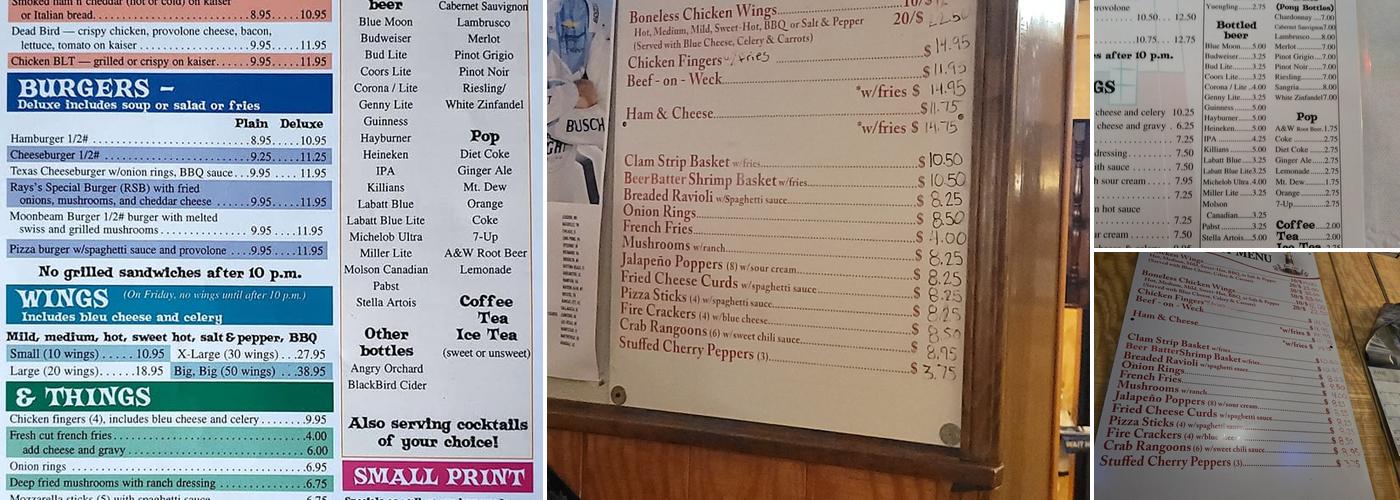 Smoked ham n cheddar (hot or cold) on kaiser
or Italian bread 8.95 10.95
Dead Bird — crispy chicken, provolone cheese, bacon,
lettuce, tomato on kaiser 9.95 11.95
Chicken BLT — grilled or crispy on kaiser 9.95 11.95
BURGERS –
Deluxe includes soup or salad or fries
Plain Deluxe
Hamburger 1/2# 8.95 10.95
Cheeseburger 1/2# 9.25 11.25
Texas Cheeseburger w/onion rings, BBQ sauce 9.95 11.95
Rays's Special Burger (RSB) with fried
onions, mushrooms, and cheddar cheese 9.95 11.95
Moonbeam Burger 1/2# burger with melted
swiss and grilled mushrooms 9.95 11.95
Pizza burger w/spaghetti sauce and provolone 9.95 11.95
No grilled sandwiches after 10 p.m.
WINGS (On Friday, no wings until after 10 p.m.)
Includes bleu cheese and celery
Mild, medium, hot, sweet hot, salt & pepper, BBQ
Small (10 wings) 10.95 X-Large (30 wings) 27.95
Large (20 wings) 18.95 Big, Big (50 wings) 38.95
& THINGS
Chicken fingers (4), includes bleu cheese and celery 9.95
Fresh cut french fries 4.00
add cheese and gravy 6.00
Onion rings 6.95
Deep fried mushrooms with ranch dressing 6.75
Mozzarella sticks (5) with spaghetti sauce 6.75
beer
Blue Moon
Budweiser
Bud Lite
Coors Lite
Corona / Lite
Genny Lite
Guinness
Hayburner
Heineken
IPA
Killians
Labatt Blue
Labatt Blue Lite
Michelob Ultra
Miller Lite
Molson Canadian
Pabst
Stella Artois
Other
bottles
Angry Orchard
BlackBird Cider
Cabernet Sauvignon
Lambrusco
Merlot
Pinot Grigio
Pinot Noir
Riesling/
White Zinfandel
Pop
Diet Coke
Ginger Ale
Mt. Dew
Orange
Coke
7-Up
A&W Root Beer
Lemonade
Coffee
Tea
Ice Tea
(sweet or unsweet)
Also serving cocktails
of your choice!
SMALL PRINT
BUSCH
Boneless Chicken Wings 10/$
Hot, Medium, Mild, Sweet-Hot, BBQ or Salt & Pepper 20/$ 22.50
(Served with Blue Cheese, Celery & Carrots)
Chicken Fingers w/fries $ 14.95
Beef - on - Weck $ 11.95
*w/fries $ 14.95
Ham & Cheese $ 11.75
*w/fries $ 14.75
Clam Strip Basket w/fries $ 10.50
BeerBatter Shrimp Basket w/fries $ 10.50
Breaded Ravioli w/Spaghetti sauce $ 8.25
Onion Rings $ 8.50
French Fries $ 4.00
Mushrooms w/ranch $ 8.25
Jalapeño Poppers (8) w/sour cream $ 8.25
Fried Cheese Curds w/spaghetti sauce $ 8.25
Pizza Sticks (4) w/spaghetti sauce $ 8.25
Fire Crackers (4) w/blue cheese $ 8.50
Crab Rangoons (6) w/sweet chili sauce $ 8.95
Stuffed Cherry Peppers (3) $ 3.75
provolone
10.50 12.50
10.75 12.75
s after 10 p.m.
GS
cheese and celery 10.25
cheese and gravy 6.25
7.25
dressing 7.50
ith sauce 7.50
sour cream 7.95
n hot sauce
7.25
ur cream 7.50
Yuengling 2.75
Bottled
beer
Blue Moon 5.00
Budweiser 3.25
Bud Lite 3.25
Coors Lite 3.25
Corona / Lite 4.00
Genny Lite 3.25
Guinness 5.00
Hayburner 5.00
Heineken 5.00
IPA 4.25
Killians 5.00
Labatt Blue 3.25
Labatt Blue Lite 3.25
Michelob Ultra 4.00
Miller Lite 3.25
Molson
Canadian 3.25
Pabst 3.25
Stella Artois 5.00
(Pony Bottles)
Chardonnay 7.00
Cabernet Sauvignon 7.00
Lambrusco 8.00
Merlot 7.00
Pinot Grigio 7.00
Pinot Noir 7.00
Riesling 7.00
Sangria 8.00
White Zinfandel 7.00
Pop
A&W Root Beer 1.75
Coke 2.75
Diet Coke 2.75
Ginger Ale 2.75
Lemonade 2.75
Mt. Dew 1.75
Orange 2.75
7-Up 2.75
Coffee 2.00
Tea 2.00
Ice Tea 2.75
MENU
Boneless Chicken Wings
Chicken Fingers
Beef - on - Weck
Ham & Cheese
*w/fries $
Clam Strip Basket w/fries
Beer BatterShrimp Basket w/fries
Breaded Ravioli w/spaghetti sauce
Onion Rings
French Fries
Mushrooms w/ranch
Jalapeño Poppers (8) w/sour cream
Fried Cheese Curds w/spaghetti sauce
Pizza Sticks (4) w/spaghetti sauce
Fire Crackers (4) w/blue
Crab Rangoons (6) w/sweet chili sauce
Stuffed Cherry Peppers (3) $ 3.75